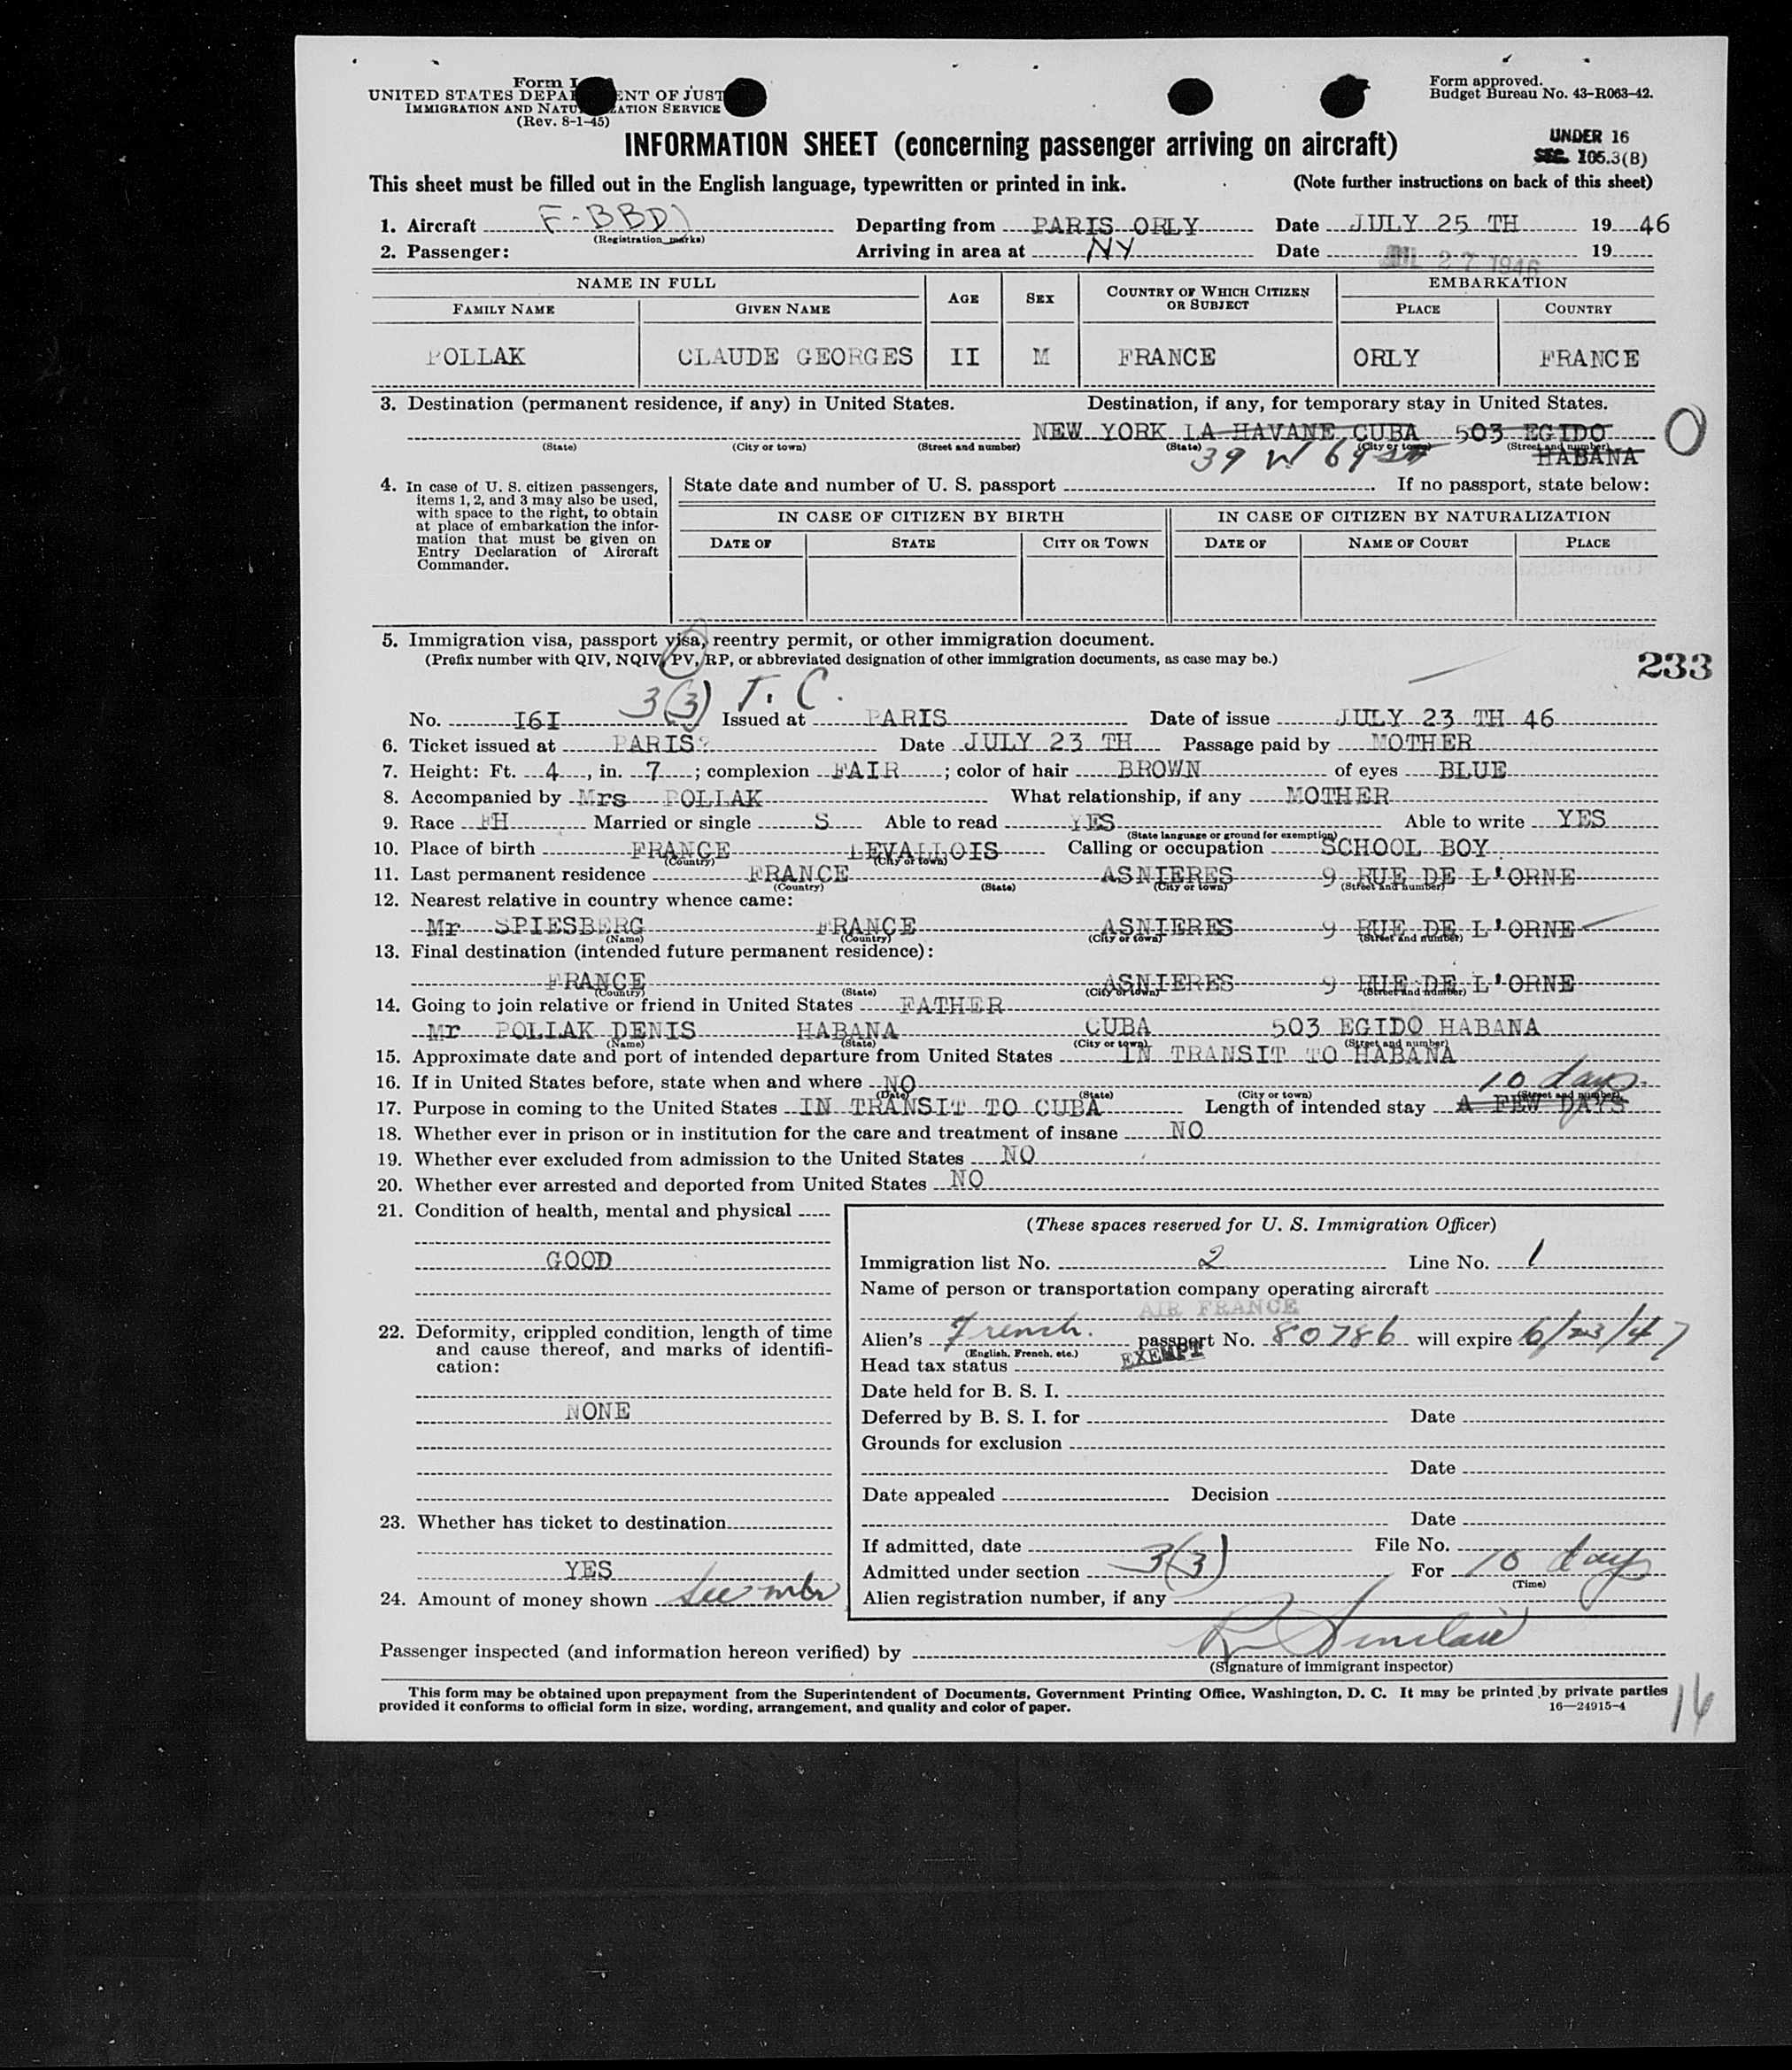 Form I
UNITED STATES DEPA ENT OF JUST
IMMIGRATION AND NATU ZATION SERVICE
(Rev. 8-1-45)
Form approved.
Budget Bureau No. 43-R063-42.
INFORMATION SHEET (concerning passenger arriving on aircraft)
UNDER 16
SEC. 105.3(B)
This sheet must be filled out in the English language, typewritten or printed in ink. (Note further instructions on back of this sheet)
1. Aircraft F-BBD Departing from PARIS ORLY Date JULY 25 TH 19 46
(Registration marks)
2. Passenger: Arriving in area at NY Date JUL 27 1946 19
NAME IN FULL AGE SEX COUNTRY OF WHICH CITIZEN OR SUBJECT EMBARKATION
FAMILY NAME GIVEN NAME PLACE COUNTRY
POLLAK CLAUDE GEORGES II M FRANCE ORLY FRANCE
3. Destination (permanent residence, if any) in United States. Destination, if any, for temporary stay in United States.
NEW YORK LA HAVANE CUBA 503 EGIDO
(State) (City or town) (Street and number) (State) (City or town) (Street and number)
39 W 69 St HABANA
4. In case of U. S. citizen passengers, items 1, 2, and 3 may also be used, with space to the right, to obtain at place of embarkation the information that must be given on Entry Declaration of Aircraft Commander.
State date and number of U. S. passport If no passport, state below:
IN CASE OF CITIZEN BY BIRTH IN CASE OF CITIZEN BY NATURALIZATION
DATE OF STATE CITY OR TOWN DATE OF NAME OF COURT PLACE
5. Immigration visa, passport visa, reentry permit, or other immigration document.
(Prefix number with QIV, NQIV, PV, RP, or abbreviated designation of other immigration documents, as case may be.)
233
3(3) T. C.
No. I6I Issued at PARIS Date of issue JULY 23 TH 46
6. Ticket issued at PARIS Date JULY 23 TH Passage paid by MOTHER
7. Height: Ft. 4, in. 7; complexion FAIR; color of hair BROWN of eyes BLUE
8. Accompanied by Mrs POLLAK What relationship, if any MOTHER
9. Race FH Married or single S Able to read YES Able to write YES
(State language or ground for exemption)
10. Place of birth FRANCE LEVALLOIS Calling or occupation SCHOOL BOY
(Country) (City or town)
11. Last permanent residence FRANCE ASNIERES 9 RUE DE L'ORNE
(Country) (State) (City or town) (Street and number)
12. Nearest relative in country whence came:
Mr SPIESBERG FRANCE ASNIERES 9 RUE DE L'ORNE
(Name) (Country) (City or town) (Street and number)
13. Final destination (intended future permanent residence):
FRANCE ASNIERES 9 RUE DE L'ORNE
(Country) (State) (City or town) (Street and number)
14. Going to join relative or friend in United States FATHER
Mr POLLAK DENIS HABANA CUBA 503 EGIDO HABANA
(Name) (State) (City or town) (Street and number)
15. Approximate date and port of intended departure from United States IN TRANSIT TO HABANA
16. If in United States before, state when and where NO 10 days
(Date) (State) (City or town) (Street and number)
17. Purpose in coming to the United States IN TRANSIT TO CUBA Length of intended stay A FEW DAYS
18. Whether ever in prison or in institution for the care and treatment of insane NO
19. Whether ever excluded from admission to the United States NO
20. Whether ever arrested and deported from United States NO
21. Condition of health, mental and physical
GOOD
22. Deformity, crippled condition, length of time and cause thereof, and marks of identification:
NONE
23. Whether has ticket to destination
YES
24. Amount of money shown See mbr
(These spaces reserved for U. S. Immigration Officer)
Immigration list No. 2 Line No. 1
Name of person or transportation company operating aircraft
AIR FRANCE
Alien's French. passport No. 80786 will expire 6/23/47
(English, French, etc.)
Head tax status EXEMPT
Date held for B. S. I.
Deferred by B. S. I. for Date
Grounds for exclusion
Date
Date appealed Decision
Date
If admitted, date File No.
Admitted under section 3(3) For 10 days
(Time)
Alien registration number, if any
Passenger inspected (and information hereon verified) by R Sinclair
(Signature of immigrant inspector)
This form may be obtained upon prepayment from the Superintendent of Documents, Government Printing Office, Washington, D. C. It may be printed by private parties
provided it conforms to official form in size, wording, arrangement, and quality and color of paper. 16—24915-4
16